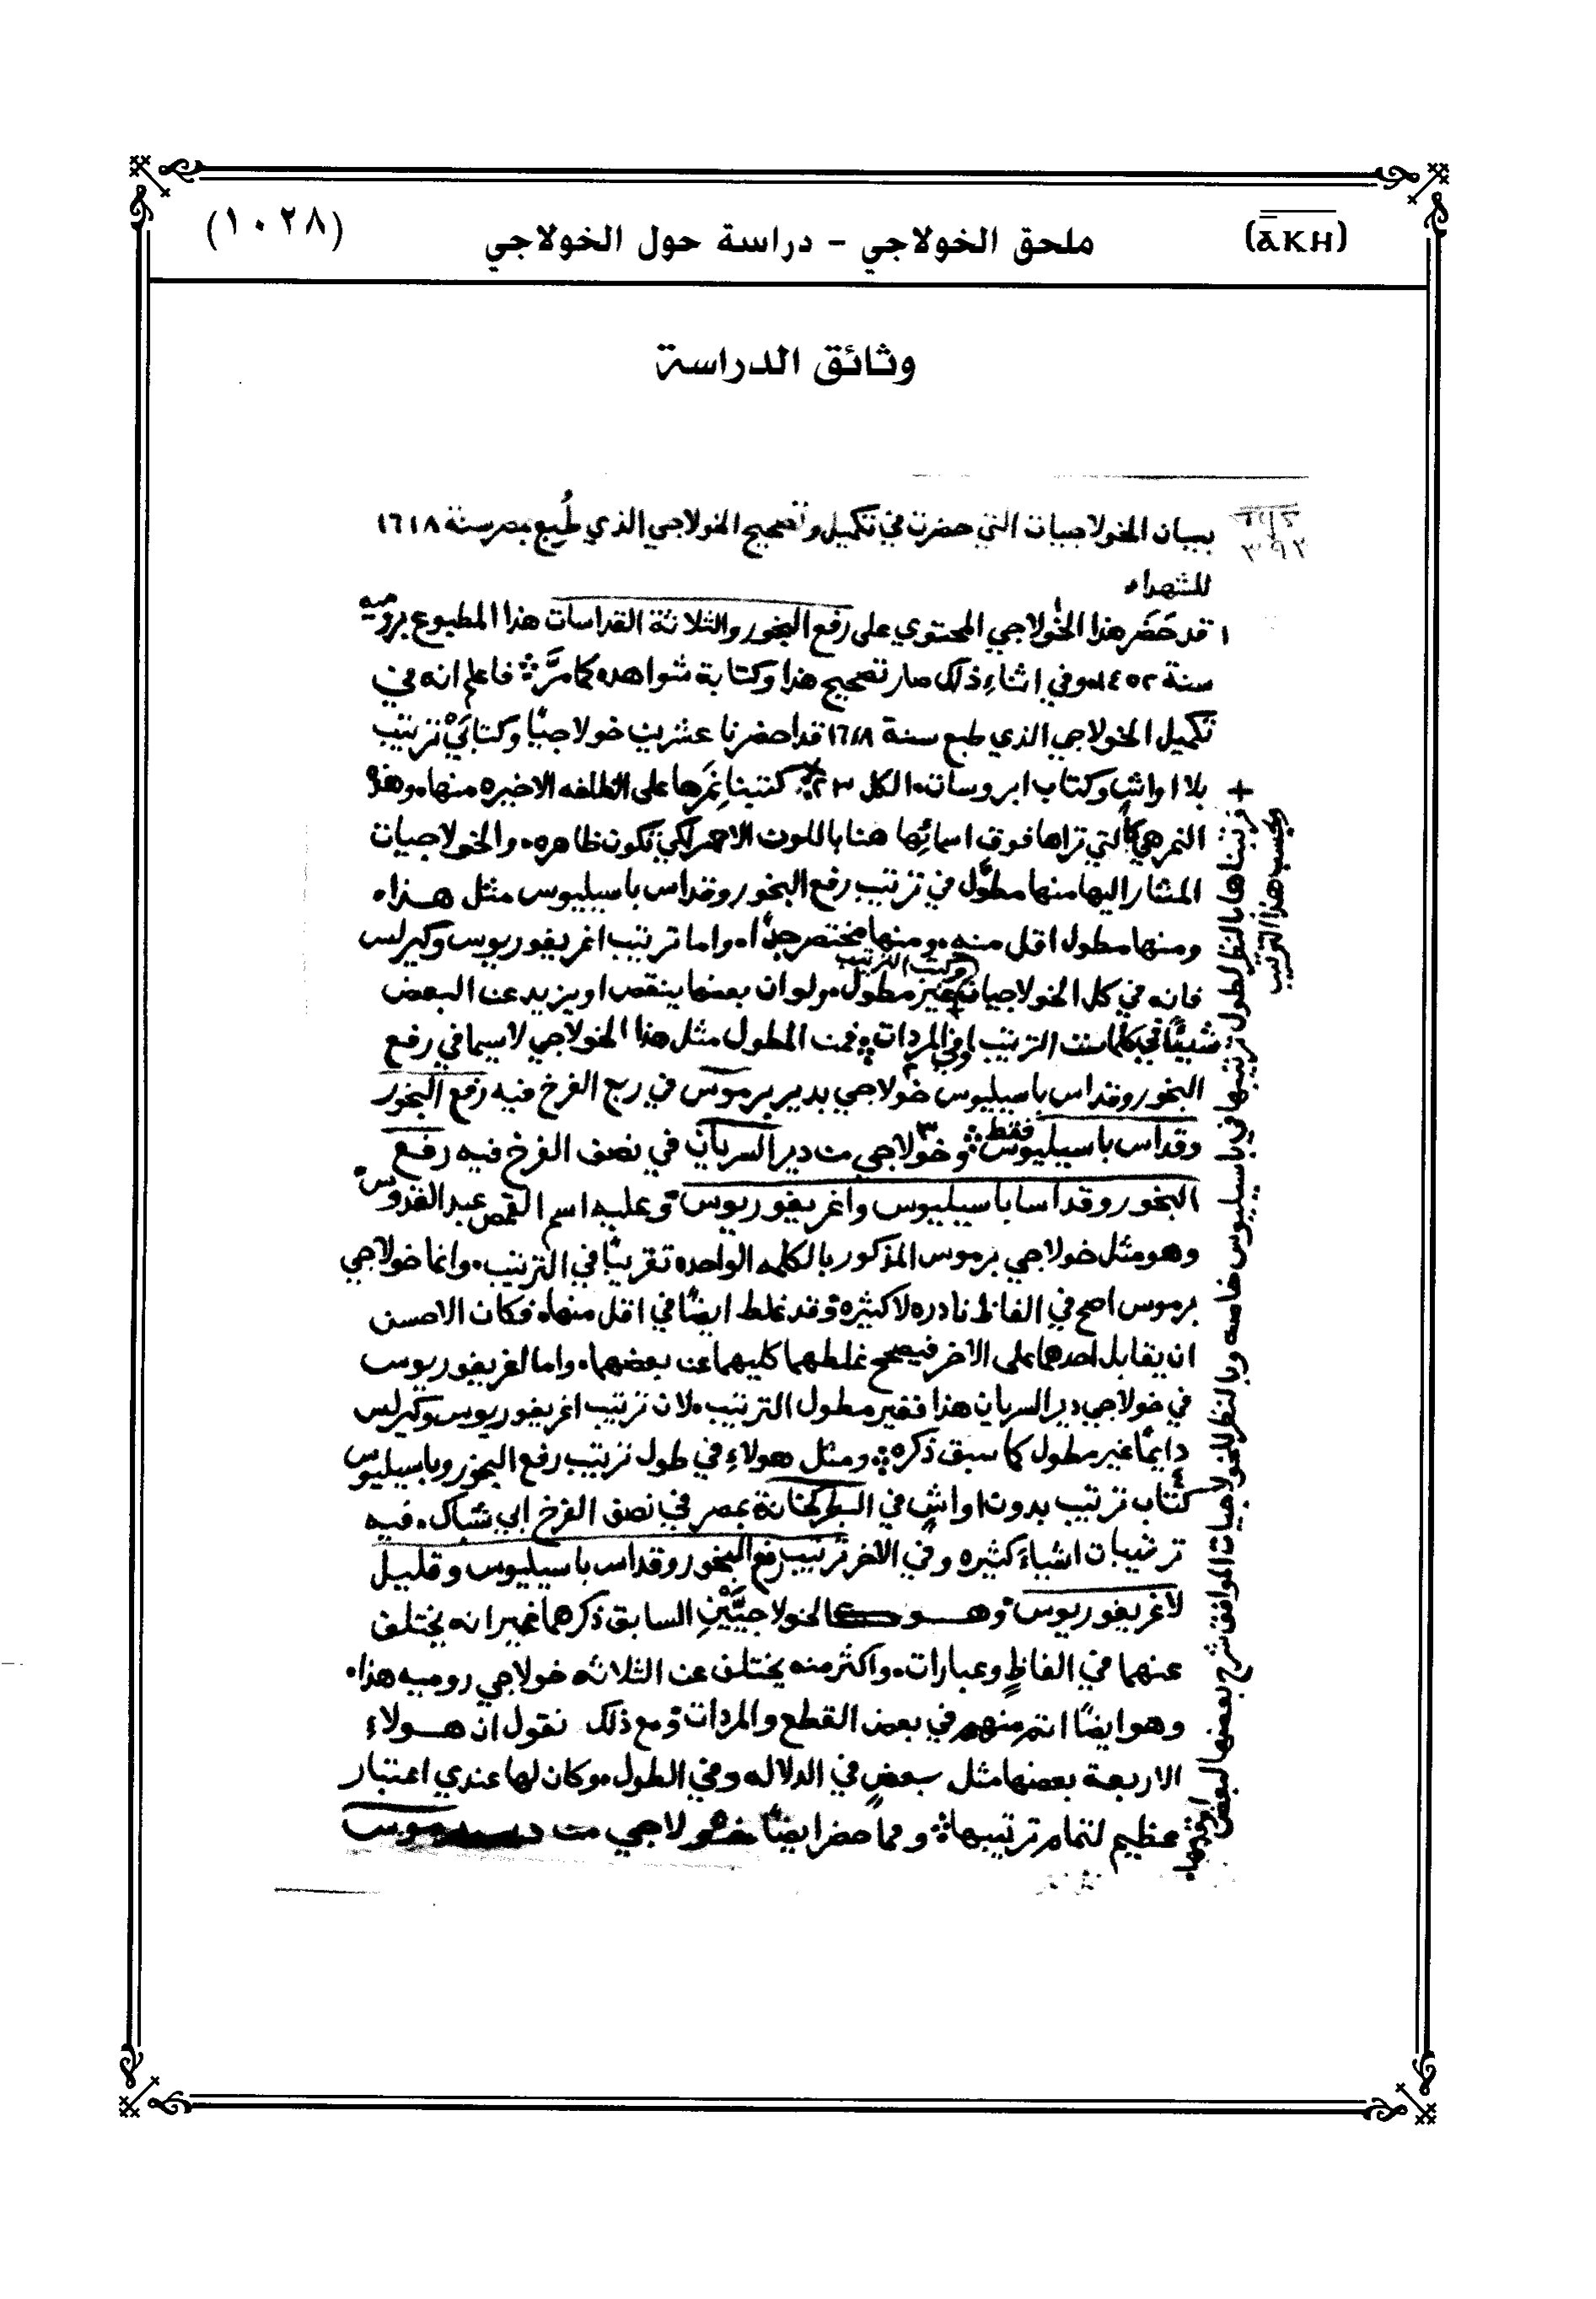 (ⲀⲔⲎ) ملحق الخولاجي - دراسة حول الخولاجي (١٠٢٨)
وثائق الدراسة
بيان الخولاجيات التي حضرت في تكميل وتصحيح الخولاجي الذي طُبع بمصر سنة ١٦١٨
للشهداء
١ قد حَضَر هذا الخولاجي المحتوي على رفع البخور والثلاثة القداسات هذا المطبوع بروميه
سنة ١٤٥٢ وفي اثناءِ ذلك صار تصحيح هذا وكتابة شواهده كما مرَّ فاعلم انه في
تكميل الخولاجي الذي طبع سنة ١٦١٨ قد احضرنا عشرين خولاجيًا وكتابَيْ ترتيب
بلا اواشٍ وكتاب ابروسات الكل ٢٣ كتبنا نِمَرها على الطلفه الاخيره منها وهذه
النمر هي التي تراها فوق اسمائها هنا باللون الاحمر لكي تكون ظاهره والخولاجيات
المشار اليها منها مطوَّل في ترتيب رفع البخور وقداس باسيليوس مثل هذا
ومنها مطول اقل منه ومنها مختصر جدًا واما ترتيب اغريغوريوس وكيرلس
وكتب الترتيب
فانه في كل الخولاجيات غير مطول ولو ان بعضها ينقص او يزيد عن البعض
شيئًا في كلمات الترتيب او في المردات فمن المطول مثل هذا الخولاجي لاسيما في رفع
البخور وقداس باسيليوس خولاجي بدير برموس في ربع الفرخ فيه رفع البخور
وقداس باسيليوس فقط وخولاجي من دير السريان في نصف الفرخ فيه رفع
البخور وقداسا باسيليوس واغريغوريوس وعليه اسم القمص عبد القدوس
وهو مثل خولاجي برموس المذكور بالكلمه الواحده تقريبًا في الترتيب وانما خولاجي
برموس اصح في الفاظ نادره لا كثيره وقد غلط ايضًا في اقل منها فكان الاحسن
ان يقابل احدهما على الاخر فيصحح غلطهما كليهما عن بعضهما واما اغريغوريوس
في خولاجي دير السريان هذا فغير مطول الترتيب لان ترتيب اغريغوريوس وكيرلس
دايمًا غير مطول كما سبق ذكره ومثل هولاءِ في طول ترتيب رفع البخور وباسيليوس
٤ كتاب ترتيب بدون اواشٍ في البطركخانة بمصر في نصف الفرخ ابي شباك فيه
ترتيبات اشياءَ كثيره وفي الاخر ترتيب رفع البخور وقداس باسيليوس وقليل
لاغريغوريوس وهو الخولاجيَّيْنِ السابق ذكرهما غير انه يختلف
عنهما في الفاظٍ وعبارات واكثر منه يختلف عن الثلاثه خولاجي روميه هذا
وهو ايضًا اتم منهم في بعض القطع والمردات ومع ذلك نقول ان هولاءِ
الاربعة بعضها مثل بعضٍ في الدلاله وفي الطول وكان لها عندي اعتبار
عظيم لتمام ترتيبها ومما حضر ايضًا خولاجي من برموس
+ رتبناها بالنظر لطول ترتيبها في باسيليوس خاصه وبالنظر للخولاجيات الموافق شرح بعضها لبعض
وبحسب هذا الترتيب